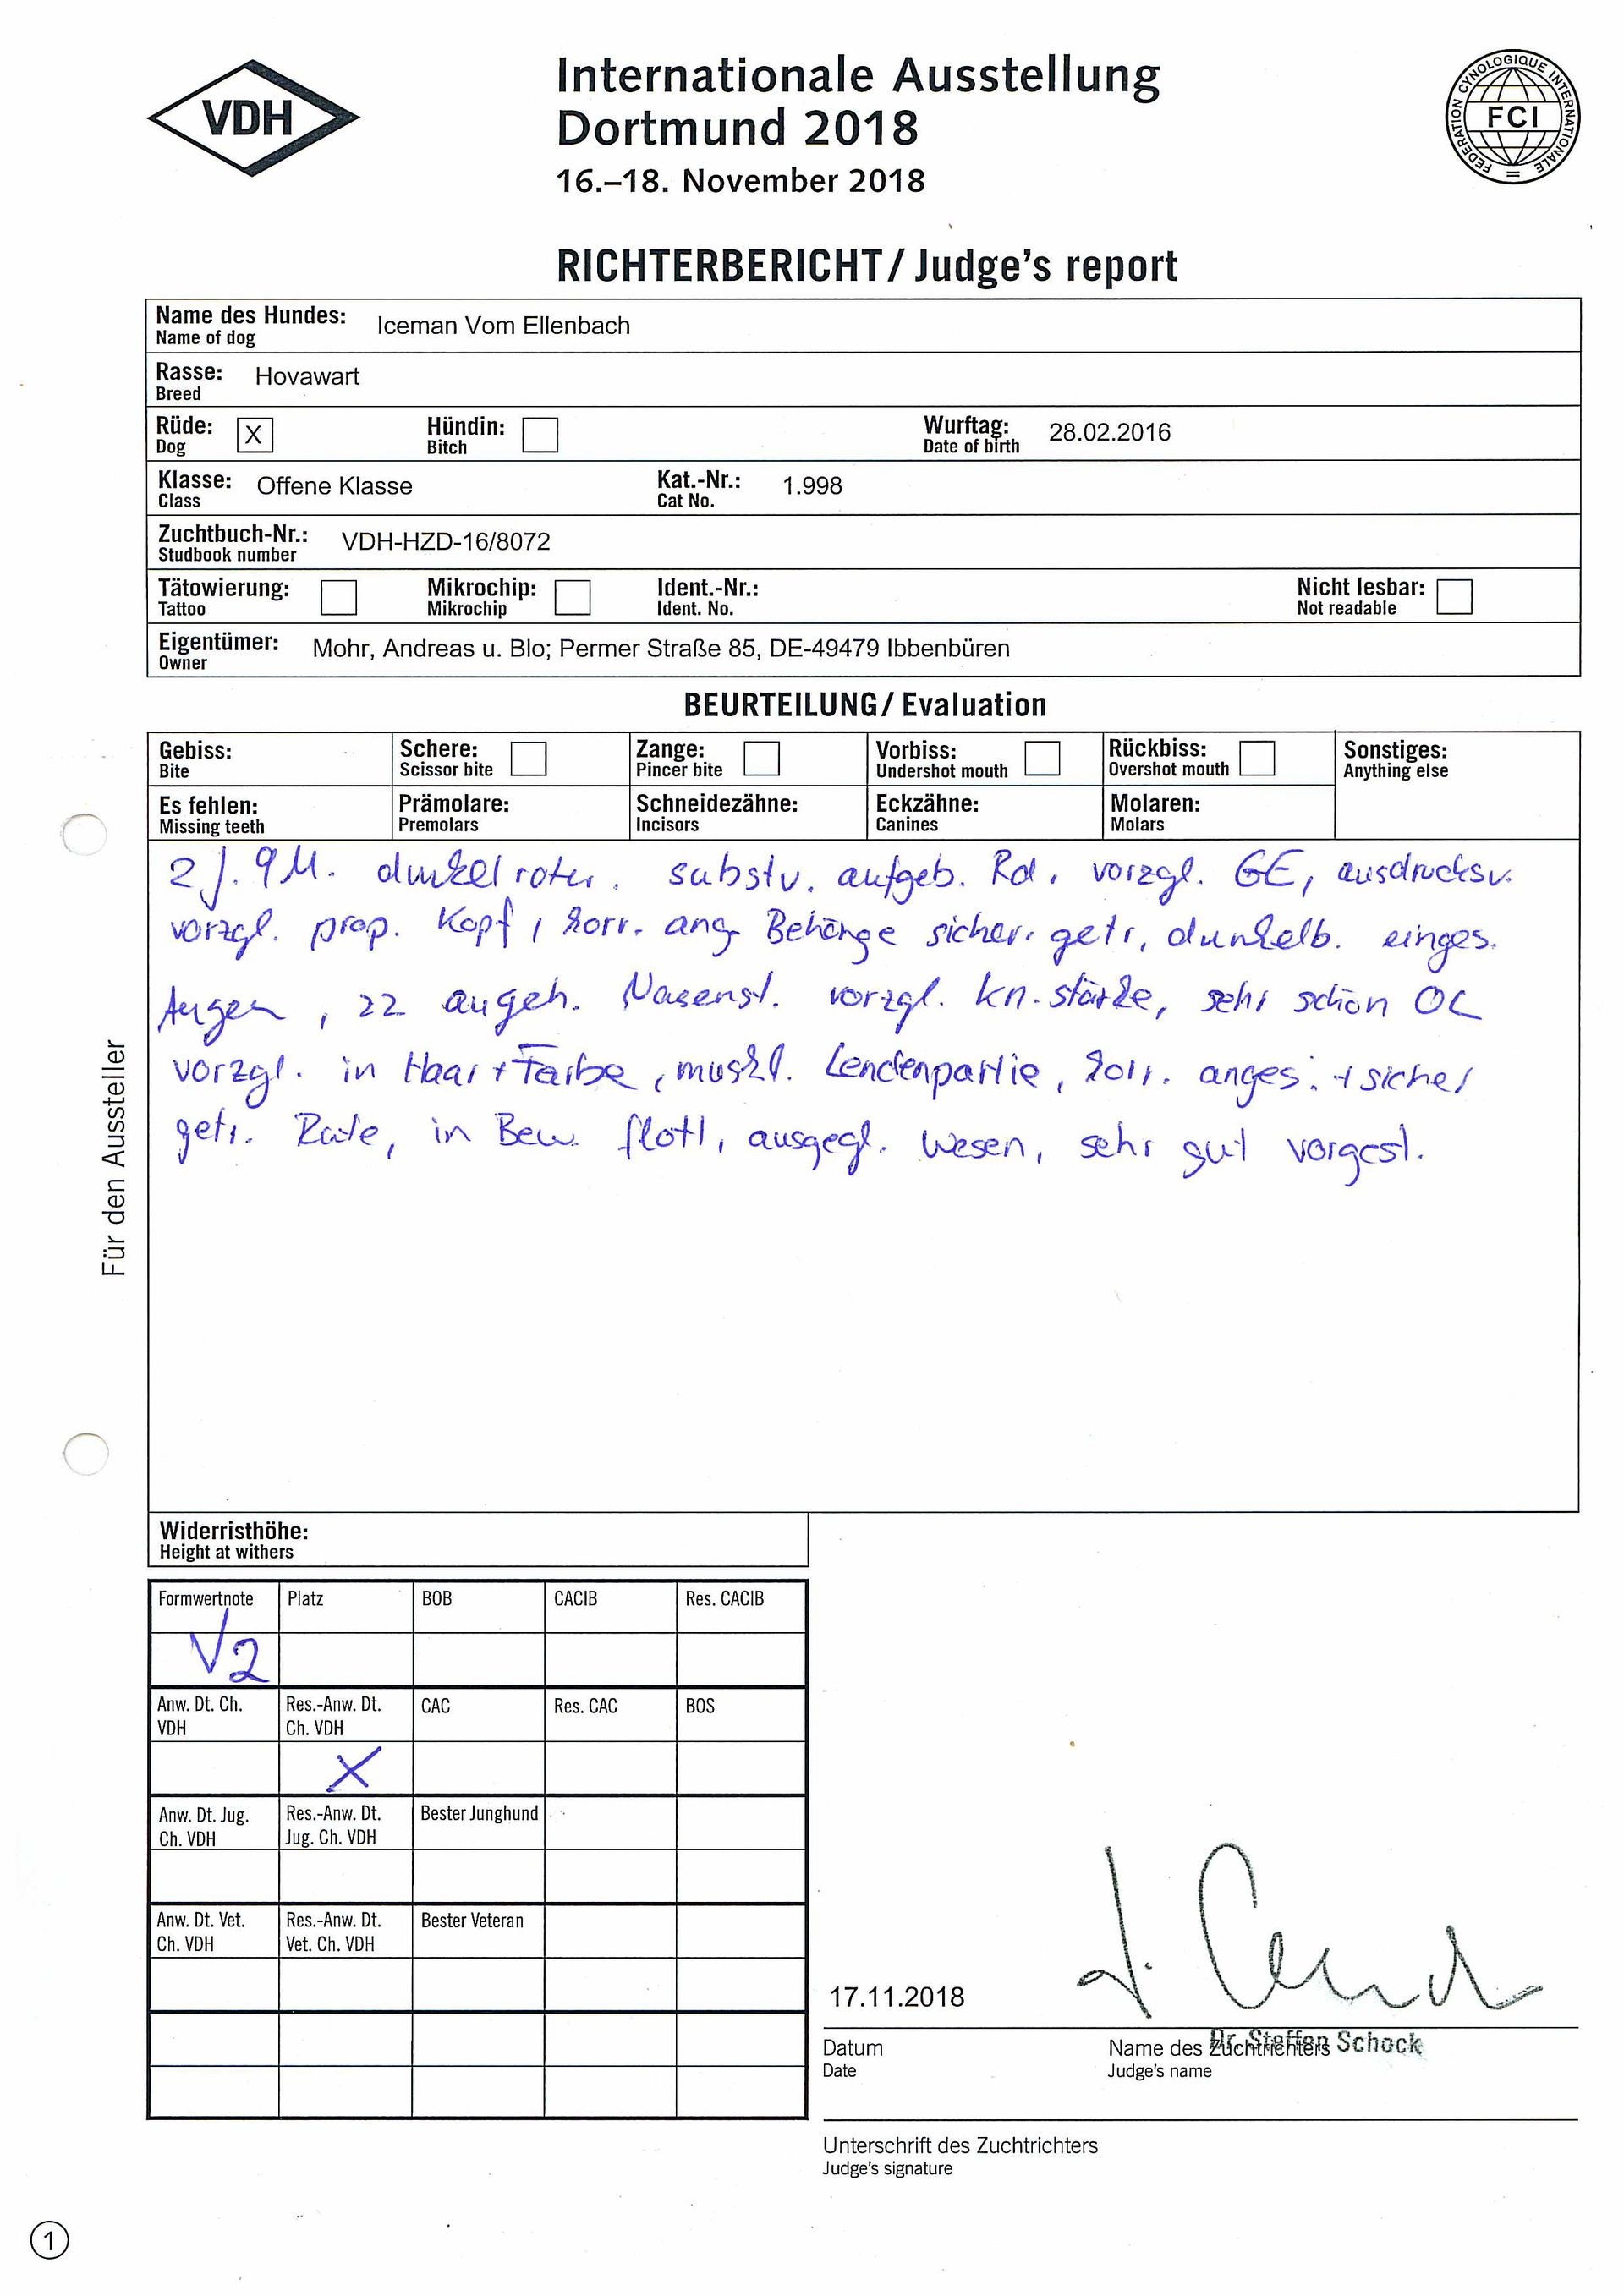 VDH
Internationale Ausstellung
Dortmund 2018
16.–18. November 2018
FEDERATION CYNOLOGIQUE INTERNATIONALE
FCI
RICHTERBERICHT/ Judge's report
Name des Hundes: Iceman Vom Ellenbach
Name of dog
Rasse: Hovawart
Breed
Rüde: X Hündin: Wurftag: 28.02.2016
Dog Bitch Date of birth
Klasse: Offene Klasse Kat.-Nr.: 1.998
Class Cat No.
Zuchtbuch-Nr.: VDH-HZD-16/8072
Studbook number
Tätowierung: Mikrochip: Ident.-Nr.: Nicht lesbar:
Tattoo Mikrochip Ident. No. Not readable
Eigentümer: Mohr, Andreas u. Blo; Permer Straße 85, DE-49479 Ibbenbüren
Owner
BEURTEILUNG/ Evaluation
Gebiss: Schere: Zange: Vorbiss: Rückbiss: Sonstiges:
Bite Scissor bite Pincer bite Undershot mouth Overshot mouth Anything else
Es fehlen: Prämolare: Schneidezähne: Eckzähne: Molaren:
Missing teeth Premolars Incisors Canines Molars
2 J. 9 M. dunkelroter. substv. aufgeb. Rd. vorzgl. GE, ausdrucksv.
vorzgl. prop. Kopf, korr. ang. Behänge sicher. getr, dunkelb. einges.
Augen, angeh. Nasenst. vorzgl. Kn. stärke, sehr schön OL
vorzgl. in Haar + Farbe, muskl. Lendenpartie, korr. anges. + sicher
getr. Rute, in Bew. flott, ausgegl. Wesen, sehr gut vorgest.
Für den Aussteller
Widerristhöhe:
Height at withers
Formwertnote Platz BOB CACIB Res. CACIB
V2
Anw. Dt. Ch. Res.-Anw. Dt. CAC Res. CAC BOS
VDH Ch. VDH
X
Anw. Dt. Jug. Res.-Anw. Dt. Bester Junghund
Ch. VDH Jug. Ch. VDH
Anw. Dt. Vet. Res.-Anw. Dt. Bester Veteran
Ch. VDH Vet. Ch. VDH
17.11.2018
Dr. Steffen Schock
Datum Name des Zuchtrichters
Date Judge's name
Unterschrift des Zuchtrichters
Judge's signature
1